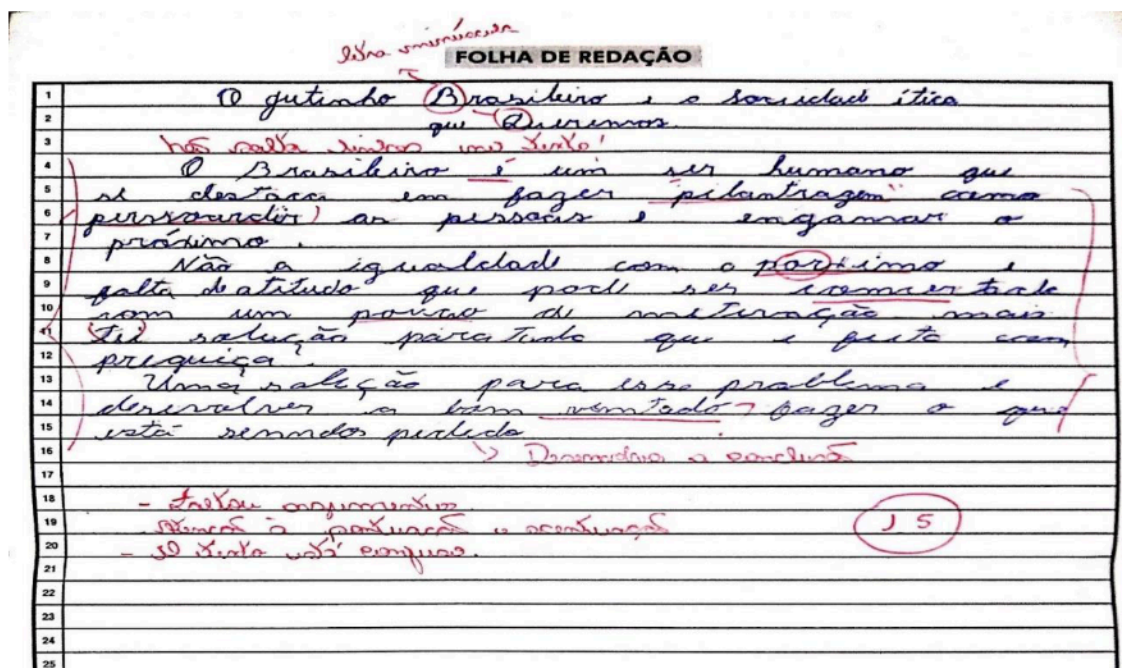 letra minúscula
FOLHA DE REDAÇÃO
1 O jutinho Brasileiro e a sociedade ética
2 que Queremos.
3 não salta linhas no texto!
4 O Brasileiro é um ser humano que
5 se destaca em fazer "pilantragem" como
6 as pessoas e enganar o
7 próximo.
8 Não a igualdade com o porximo e
9 falta de atitudo que pode ser
10 com um pouco de mais
11 solução para tudo que e feito com
12 preguiça.
13 Uma soleção para esse problema e
14 desenvolver a bom ventado fazer o que
15 está senndos pedido
16 Desenvolva a conclusão
17
18 - Faltou argumentos
19 - Atenção à pontuação e acentuação
20 - O texto está confuso.
15
21
22
23
24
25